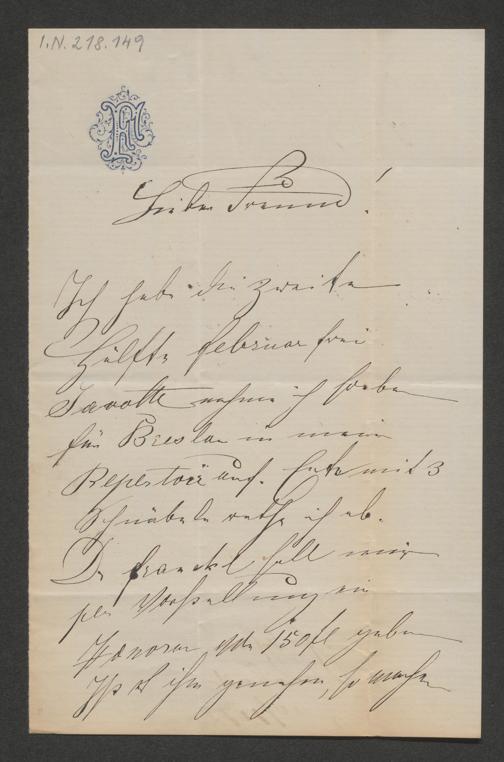 I.N. 218.149
Lieber Freund!
Ich habe die zweite
Hälfte Februar frei
Javotte nehme ich soeben
für Breslau in mein
Repertoir auf. Ente mit 3
Schnäbeln rathe ich ab.
Dr Franckl soll mir
per Vorstellung ein
Honorar von 150 fl geben
Ist es ihm genehm, so machen